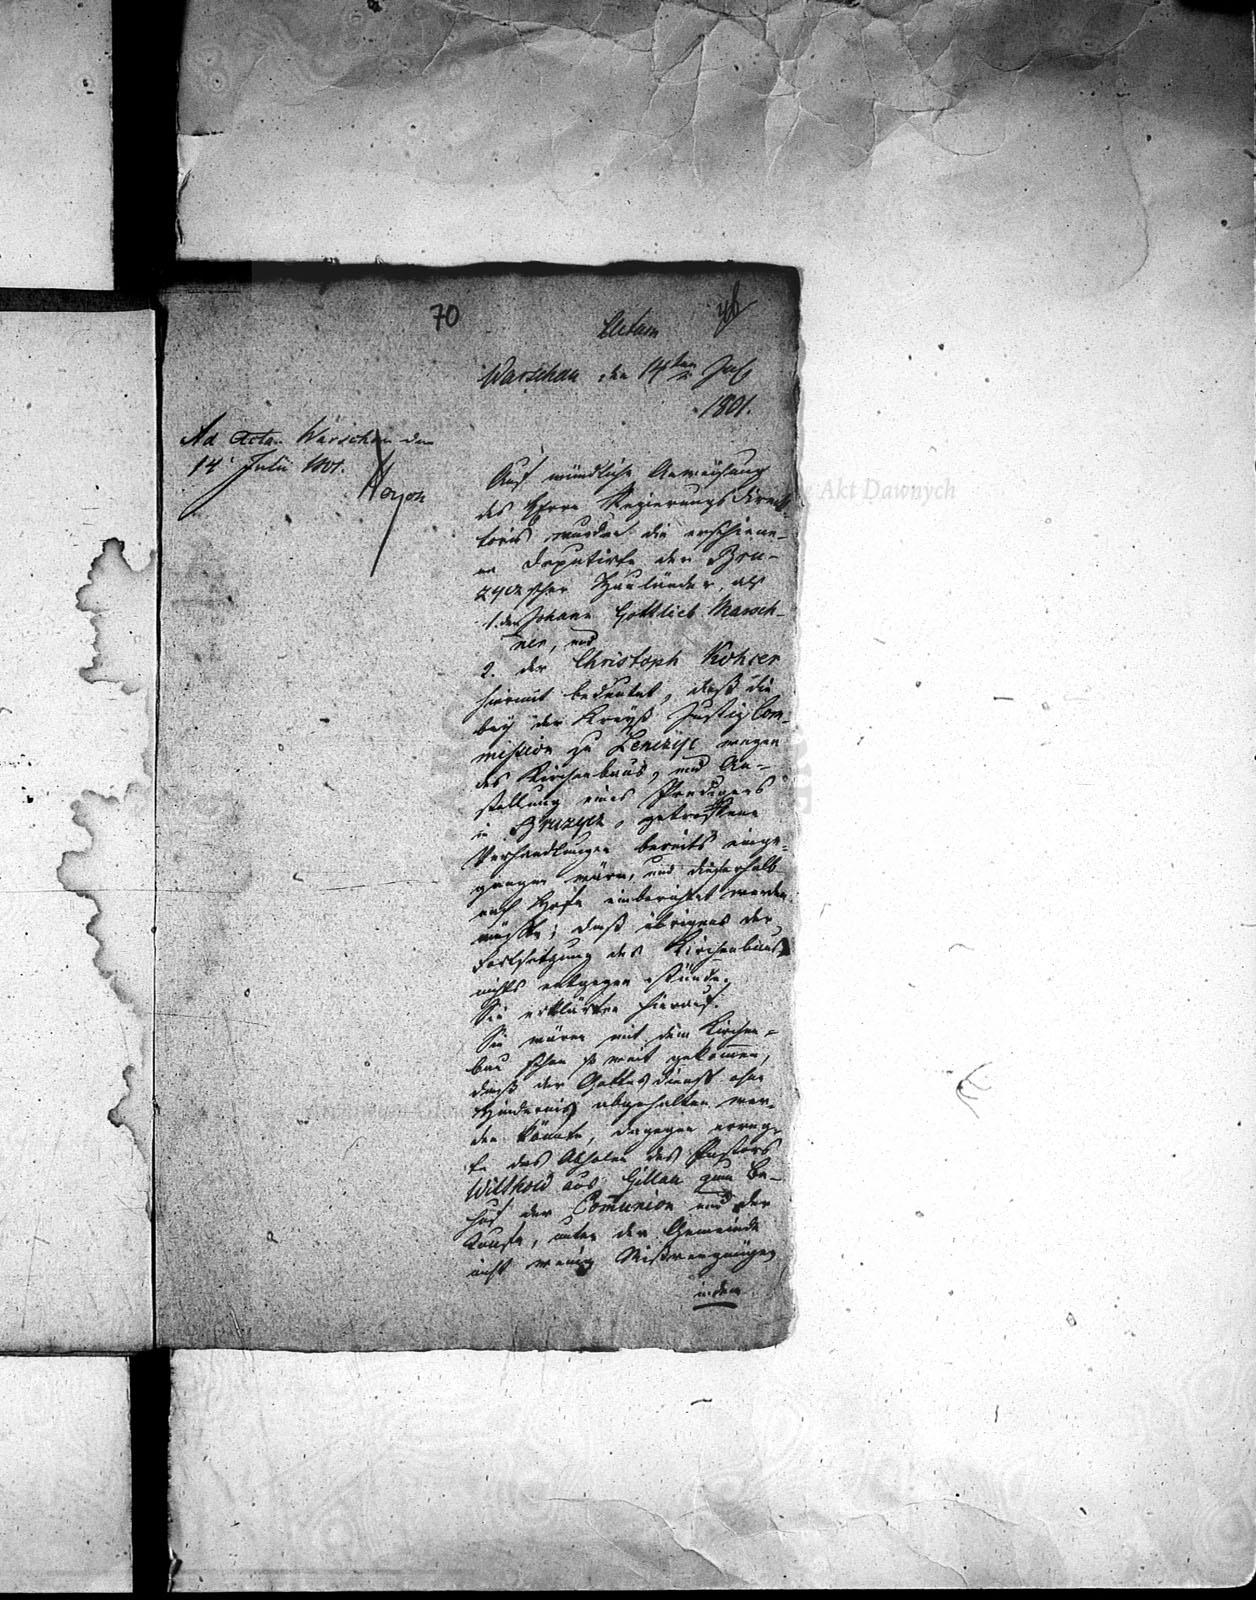 70
Actum
Warschau den 14ten July
1801.
Ad Acta. Warschau den
14 Julii 1801.
Auf mündliche Anweisung
des Herrn Regierungs Direc
toris wurden die erschiene-
ne Deputirte der Bru-
zyczscher Hauländer, als
1. der Johann Gottlieb Marsch-
ner, und
2. der Christoph Kohser
hiermit bedeutet, daß die
bey der Kreyß Justiz Com-
mission zu Lenczyc wegen
des Kirchenbaus, und An-
stellung eines Predigers
in Bruzyca, getroffene
Verhandlungen bereits einge-
gangen wären, und dieserhalb
nach Hofe einberichtet werden
müßte; daß übrigens der
Fortsetzung des Kirchenbaus
nichts entgegen stünde.
Sie erklärten hierauf.
Sie wären mit dem Kirchen-
bau schon so weit gekommen,
daß der Gottesdienst ohne
Hinderniß abgehalten wer-
den könnte, dagegen erreg-
te das Abholen des Pastors
Witthold aus Gillau zum Be-
huf der Comunion und der
Taufe, unter der Gemeinde
nicht wenig Mißvergnügen
indem
Akt Dawnych